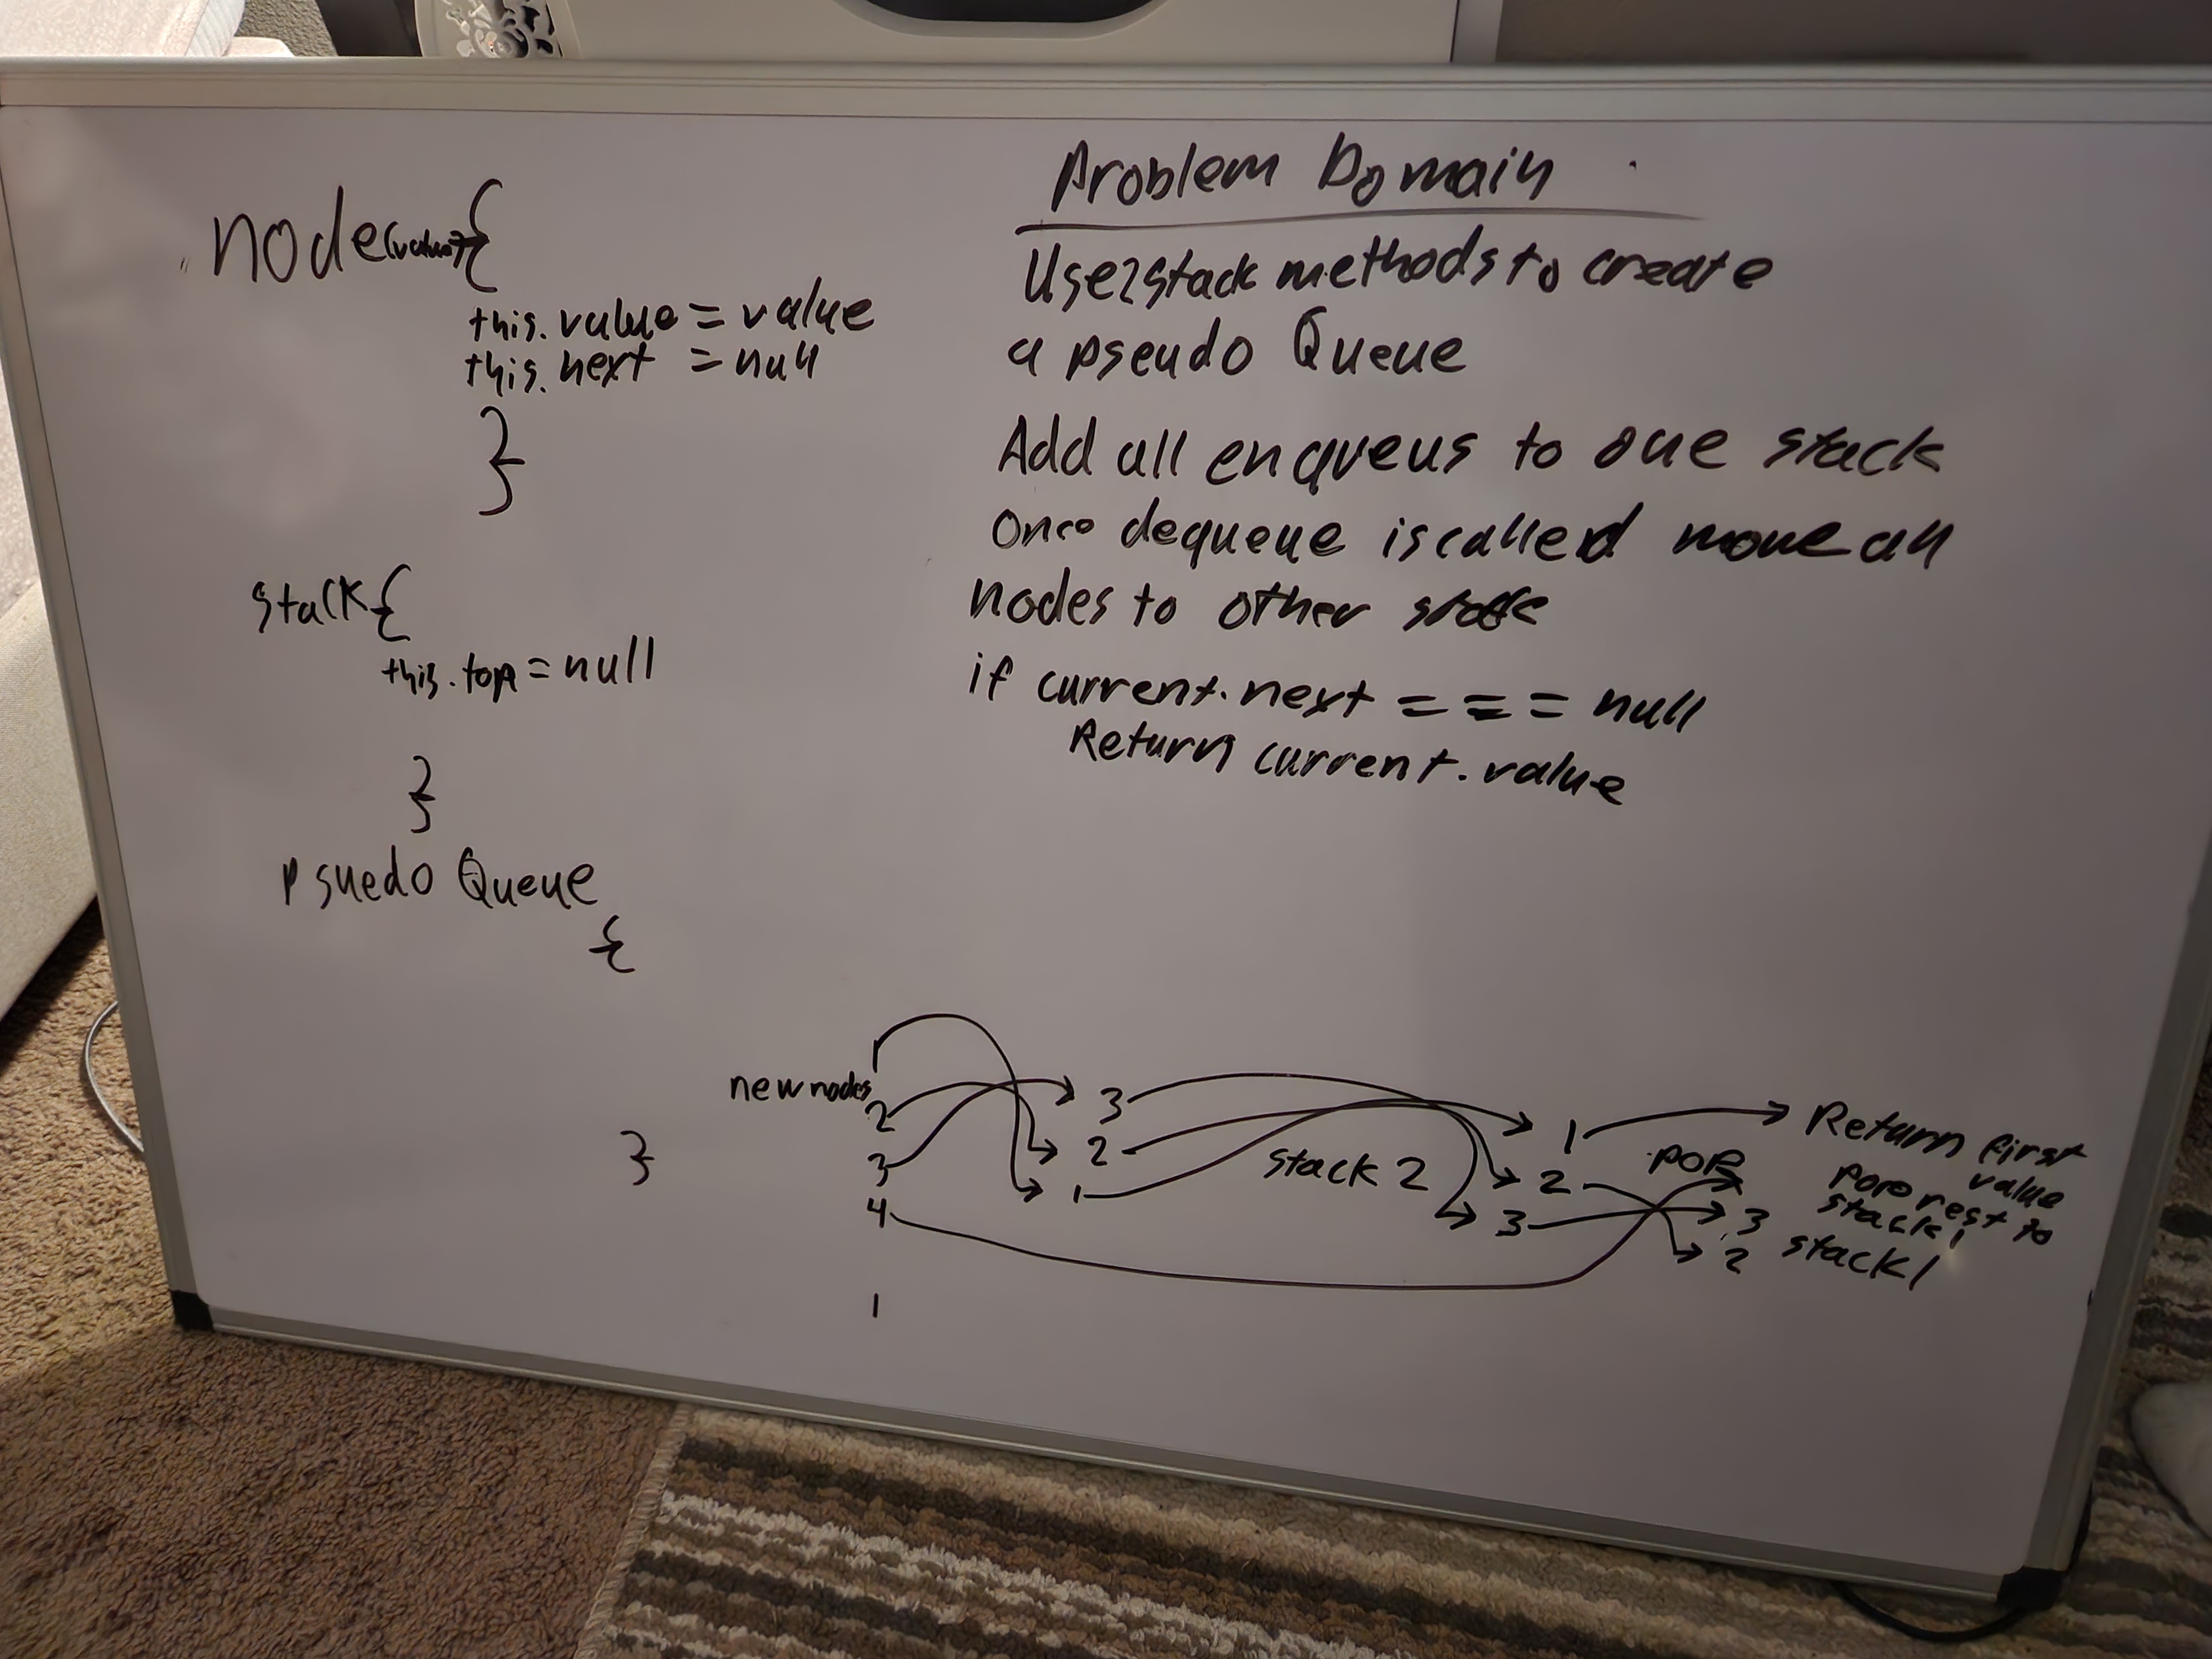 node(value){
this.value = value
this.next = null
}
stack{
this.top = null
}
psuedo Queue
{
}
Problem Domain
Use 2 stack methods to create
a pseudo Queue
Add all enqueus to one stack
Once dequeue is called move all
nodes to other stack
if current.next === null
Return current.value
1
new nodes
2
3
4
1
3
2
1
stack 2
1
2
3
pop
3
2
Return first
value
pop rest to
stack 1
stack 1